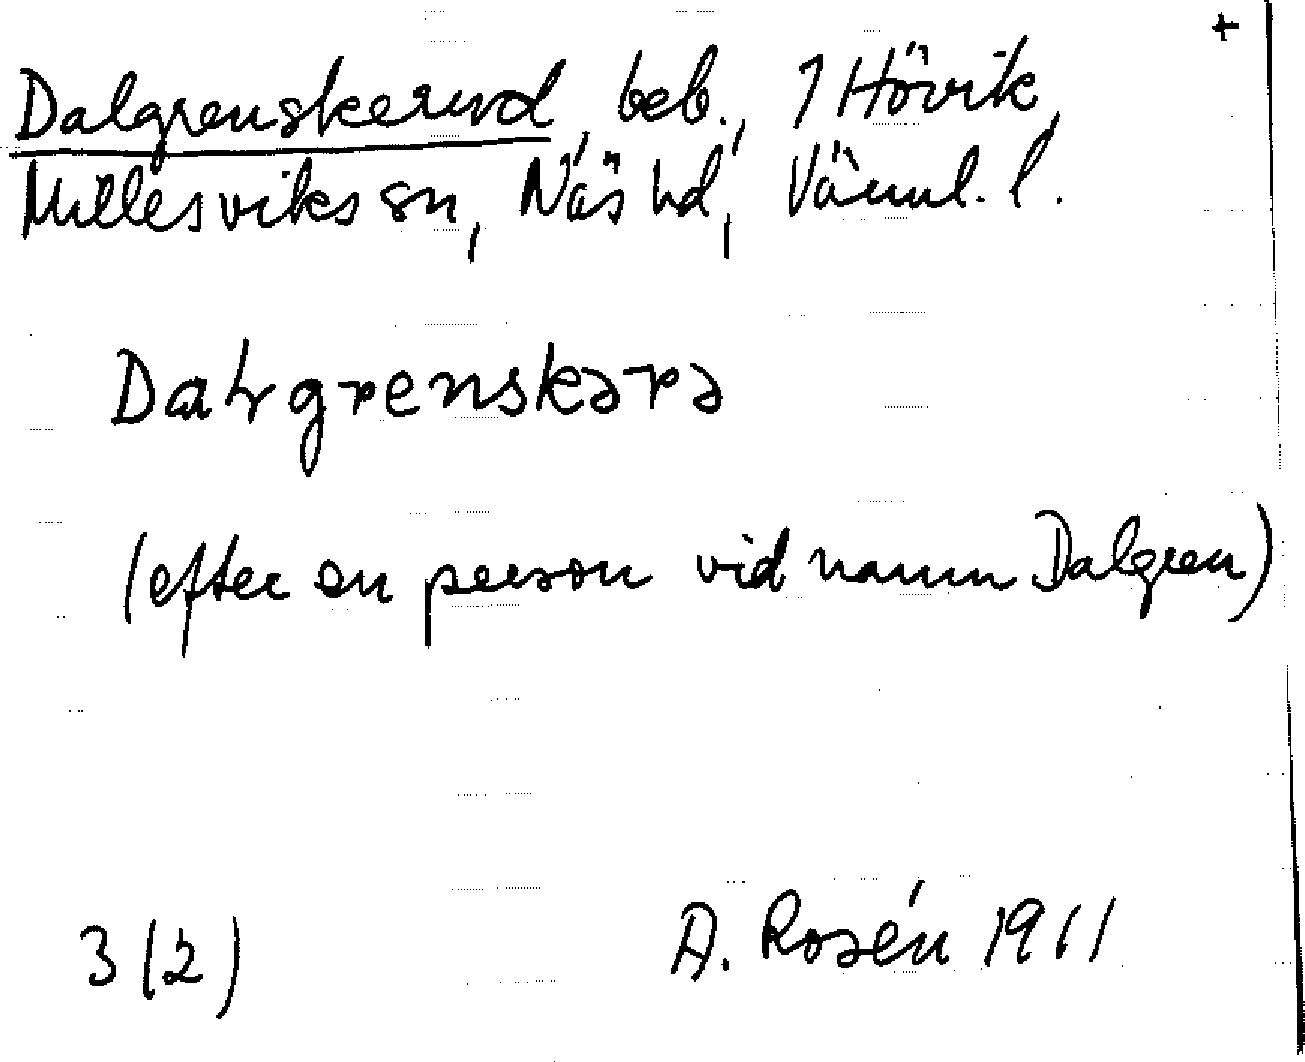 +
Dalgrenskerud, beb., 7 Hövik,
Millesviks sn, Näs hd, Värml. l.
Dalgrenskərə
(efter en person vid namn Dalgren)
3 (2)
A. Rosén 1911